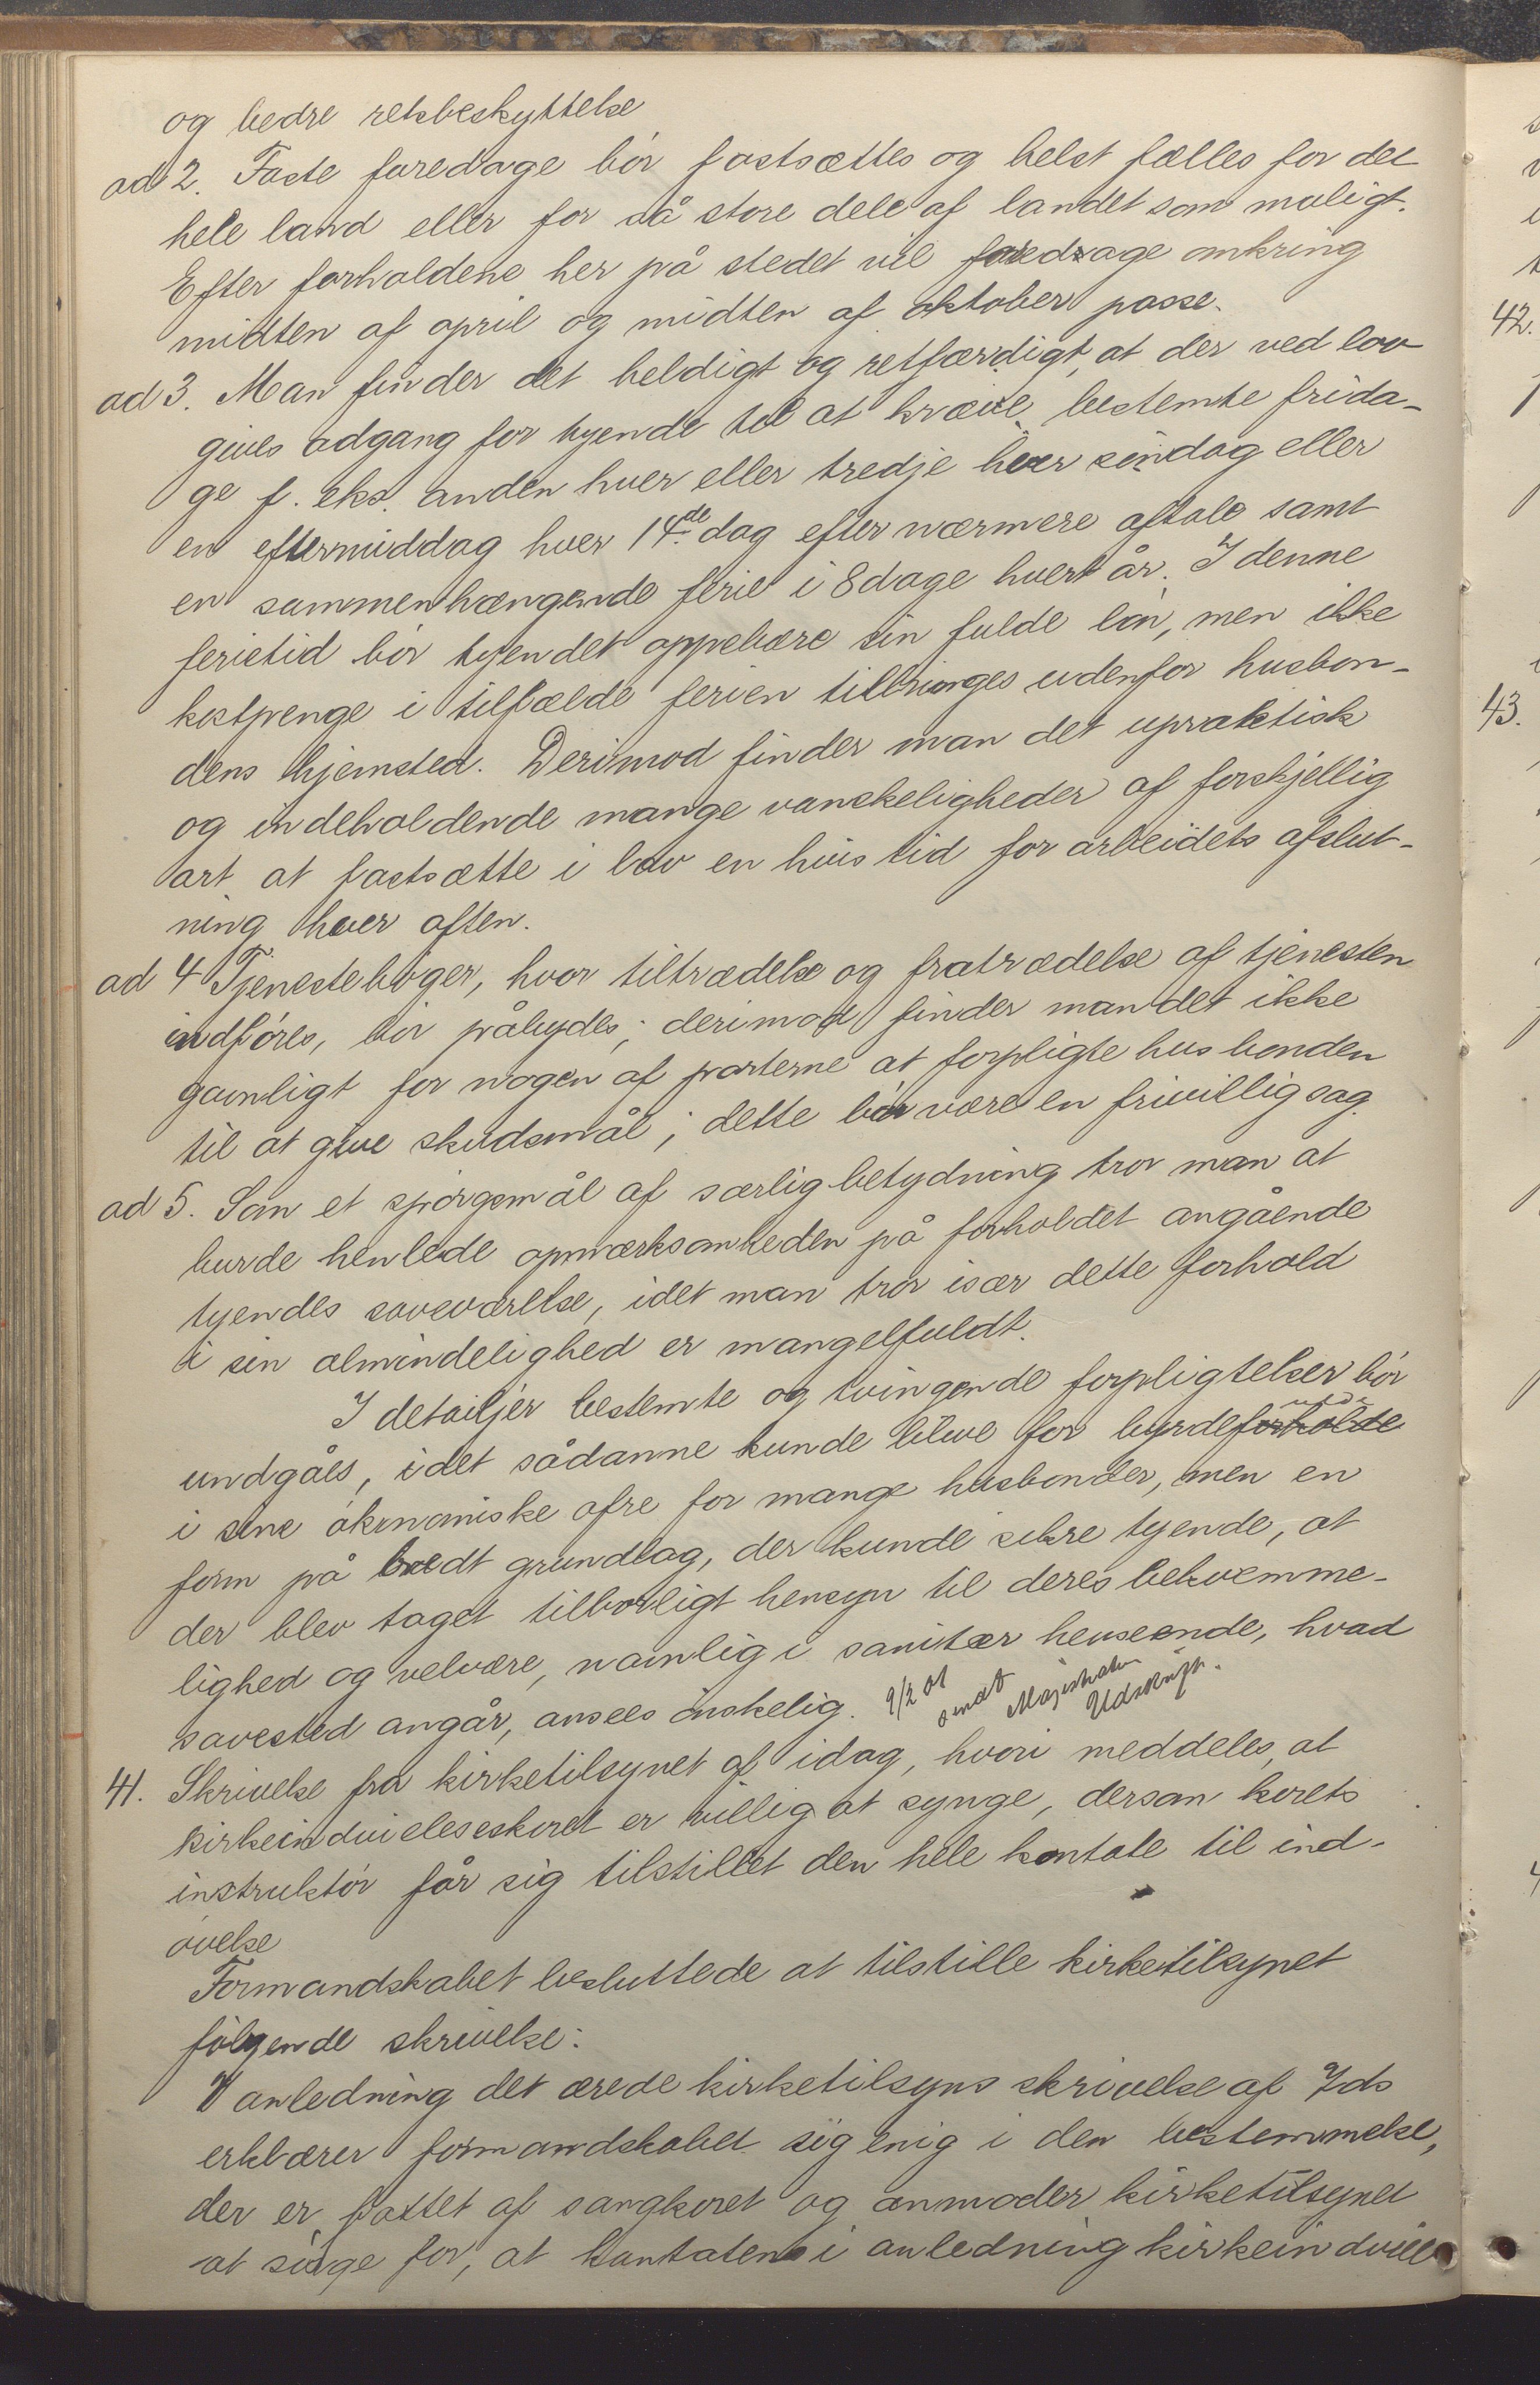 og bedre retsbeskyttelse
ad 2. Faste faredage bör fastsættes og helst fælles for det
hele land eller for så store dele af landet som muligt.
Efter forholdene her på stedet vil faredage omkring
midten af april og midten af oktober passe.
ad 3. Man finder det heldigt og retfærdigt, at der ved lov
gives adgang for tyende til at kræve bestemte frida-
ge f. eks. anden hver eller tredje hver söndag eller
en eftermiddag hver 14de dag efter nærmere aftale samt
en sammenhængende ferie i 8 dage hvert år. I denne
ferietid bör tyendet oppebære sin fulde lön, men ikke
kostpenge i tilfælde ferien tilbringes udenfor husbon-
dens hjemsted. Derimod finder man det upraktisk
og indeholdende mange vanskeligheder af forskjellig
art at fastsætte i lov en hvis tid for arbeidets afslut-
ning hver aften.
ad 4 Tjenesteböger, hvor tiltrædelse og fratrædelse af tjenesten
indföres, bör påbydes; derimod finder man det ikke
gavnligt for nogen af parterne at forpligte husbonden
til at give skudsmål; dette bör være en frivillig sag.
ad 5. Som et spörgsmål af særlig betydning tror man at
burde henlede opmærksomheden på forholdet angående
tyendes soveværelse, idet man tror især dette forhold
i sin almindelighed er mangelfuldt.
I detailjer bestemte og tvingende forpligtelser bör
undgåes, idet sådanne kunde blive for byrdeforholde
i sine ökonomiske ofre for mange husbonder, men en
form på bredt grundlag, der kunde sikre tyende, at
der blev taget tilbörligt hensyn til deres bekvemme-
lighed og velvære, navnlig i sanitær henseende, hvad
sovested angår, ansees önskelig. 9/2 01 Magistraten Udskrift.
41. Skrivelse fra kirketilsynet af idag, hvori meddeles, at
kirkeindvielseskoret er villig at synge, dersom korets
instruktör får sig tilstillet den hele kantate til ind-
övelse
Formandskabet besluttede at tilstille kirketilsynet
fölgende skrivelse:
I anledning det ærede kirketilsyns skrivelse af 7ds
erklærer formandskabet sig enig i den bestemmelse,
der er fattet af sangkoret og anmoder kirketilsynet
at sörge for, at kantaten i anledning kirkeindviel
42.
43.